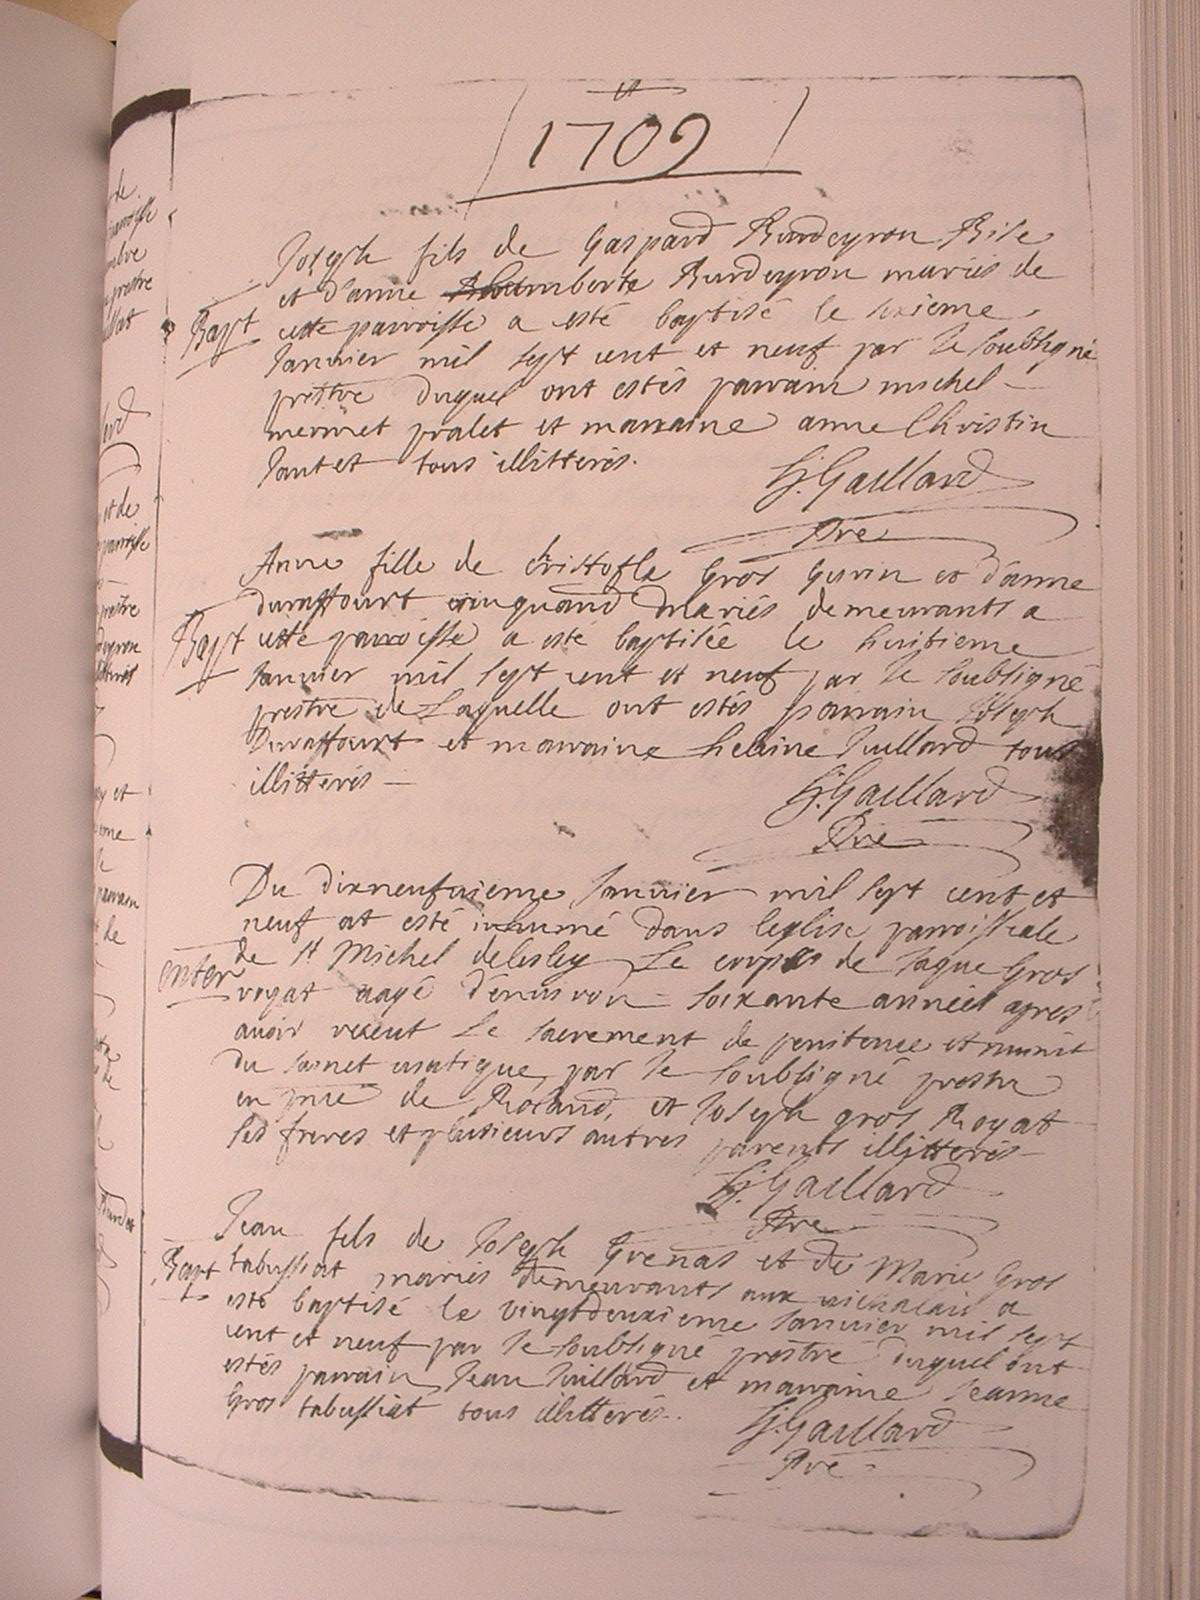 1709
Joseph fils de Gaspard Burdeyron Bise
et d'anne humberte Burdeyron mariés de
Bapt cette parroisse a esté baptisé le sixieme
Janvier mil sept cent et neuf par le soubsigné
prestre duquel ont estés parrain michel
mermet pralet et marraine anne Christin
Jantet tous illitterés.
Gaillard
Pre
Anne fille de Cristofle Gros Gurin et d'anne
duraffourt mariés demeurants a
Bapt cette parroisse a esté baptisée le huitieme
Janvier mil sept cent et neuf par le soubsigné
prestre de laquelle ont estés parrain Joseph
Duraffourt et marraine helaine Juillard tous
illitterés
Gaillard
Pre
Du dixneufvieme Janvier mil sept cent et
neuf at esté inhumé dans leglise parroissiale
de St Michel le corps de Jaque Gros
enter royat aagé d'environ soixante années apres
avoir receut le sacrement de penitence et munit
du sainct viatique par le soubsigné prestre
en pnce de Roland, et Joseph gros Royat
ses freres et plusieurs autres parents illitterés
Gaillard
Pre
Jean fils de Joseph Grenas et de Marie Gros
Bapt tabussiat mariés demeurants aux a
esté baptisé le vingtdeuxieme Janvier mil sept
cent et neuf par le soubsigné prestre duquel ont
estés parrain Jean Juillard et marraine Jeanne
Gros tabussiat tous illitterés.
Gaillard
Pre